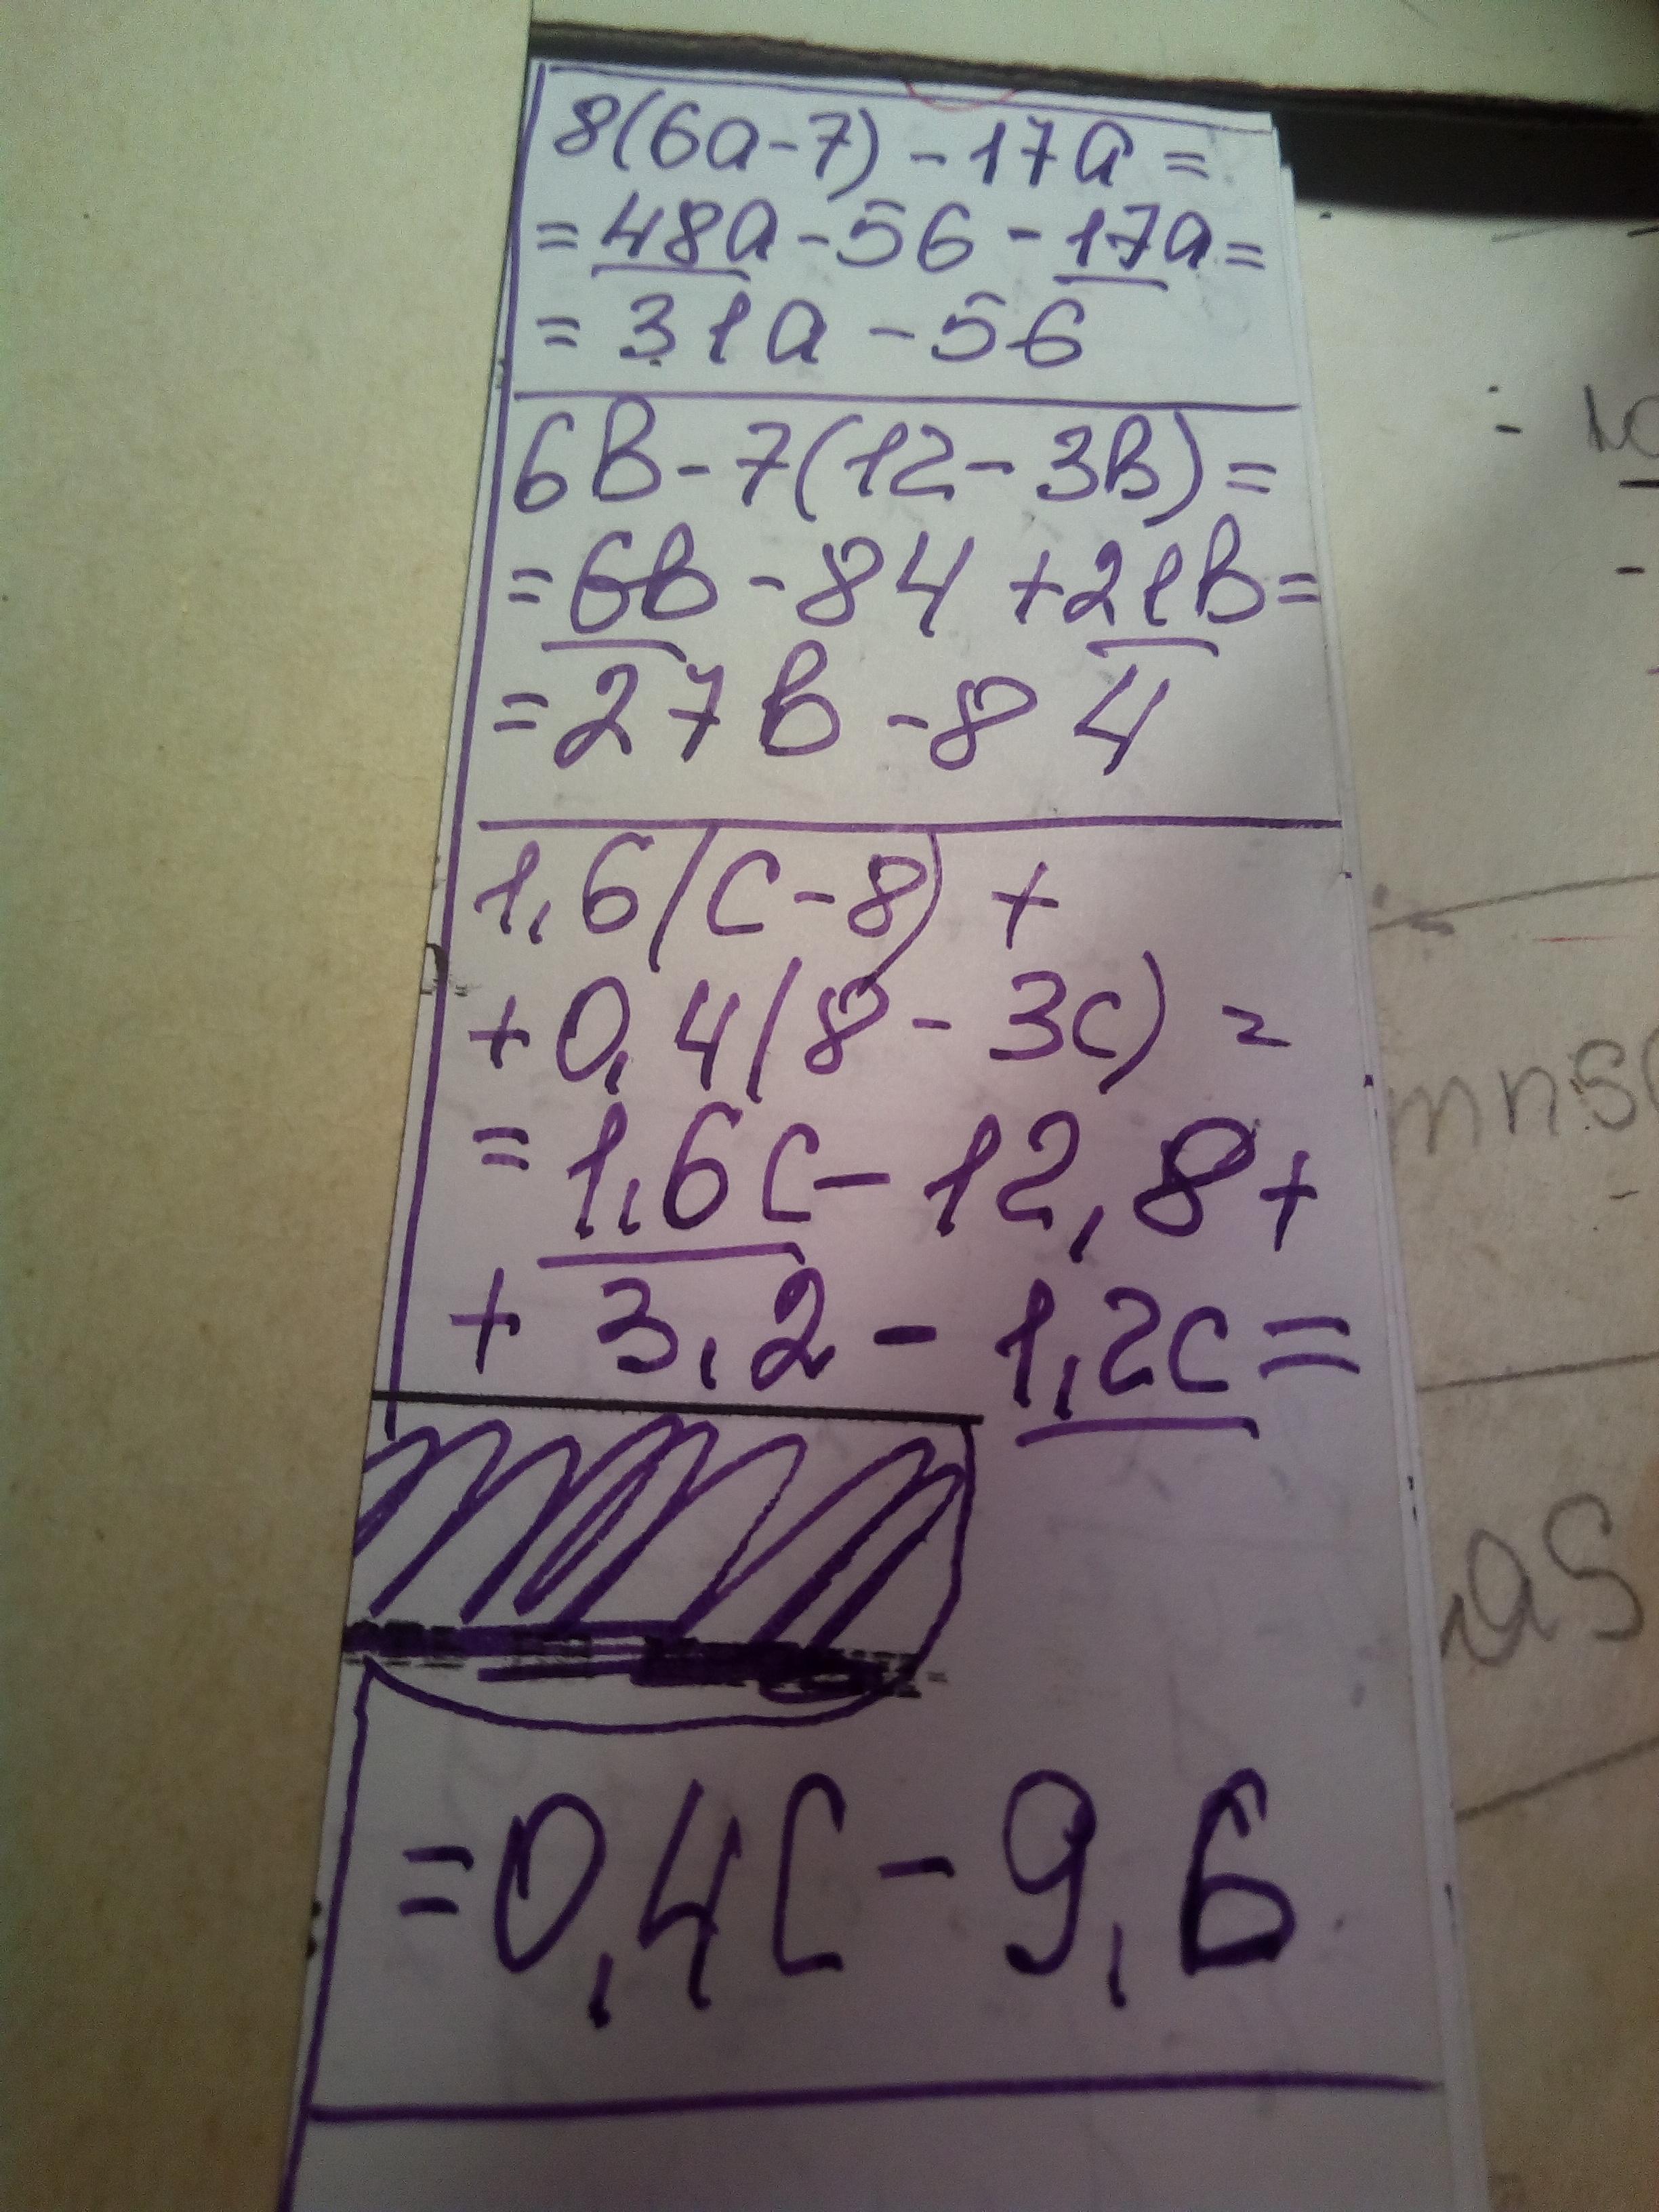 8(6a-7)-17a=
=48a-56-17a=
=31a-56
6в-7(12-3в)=
=6в-84+21в=
=27в-84
1,6(c-8)+
+0,4(8-3c)=
=1,6c-12,8+
+3,2-1,2c=
=0,4c-9,6
mn5
a5